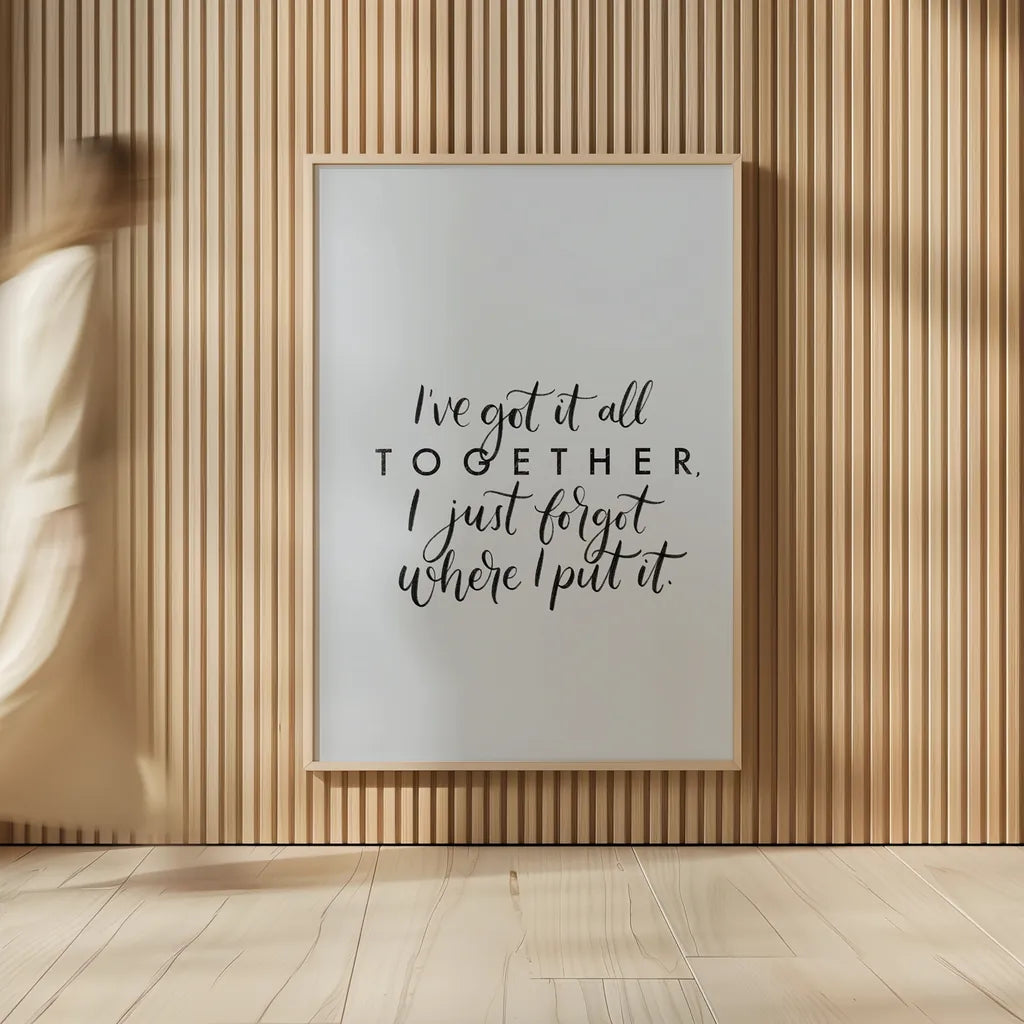 I've got it all
TOGETHER,
I just forgot
where I put it.